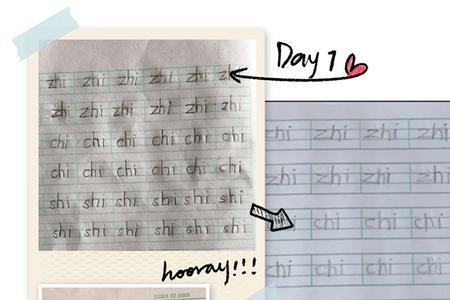 Day 1
zhi zhi zhi zhi zhi zhi
zhi zhi zhi zhi zhi zhi
chi chi chi chi chi chi
chi chi chi chi chi chi
shi shi shi shi shi shi
shi shi shi shi shi shi
hooray!!!
zhi zhi zhi
zhi zhi zhi
chi chi chi
chi chi chi